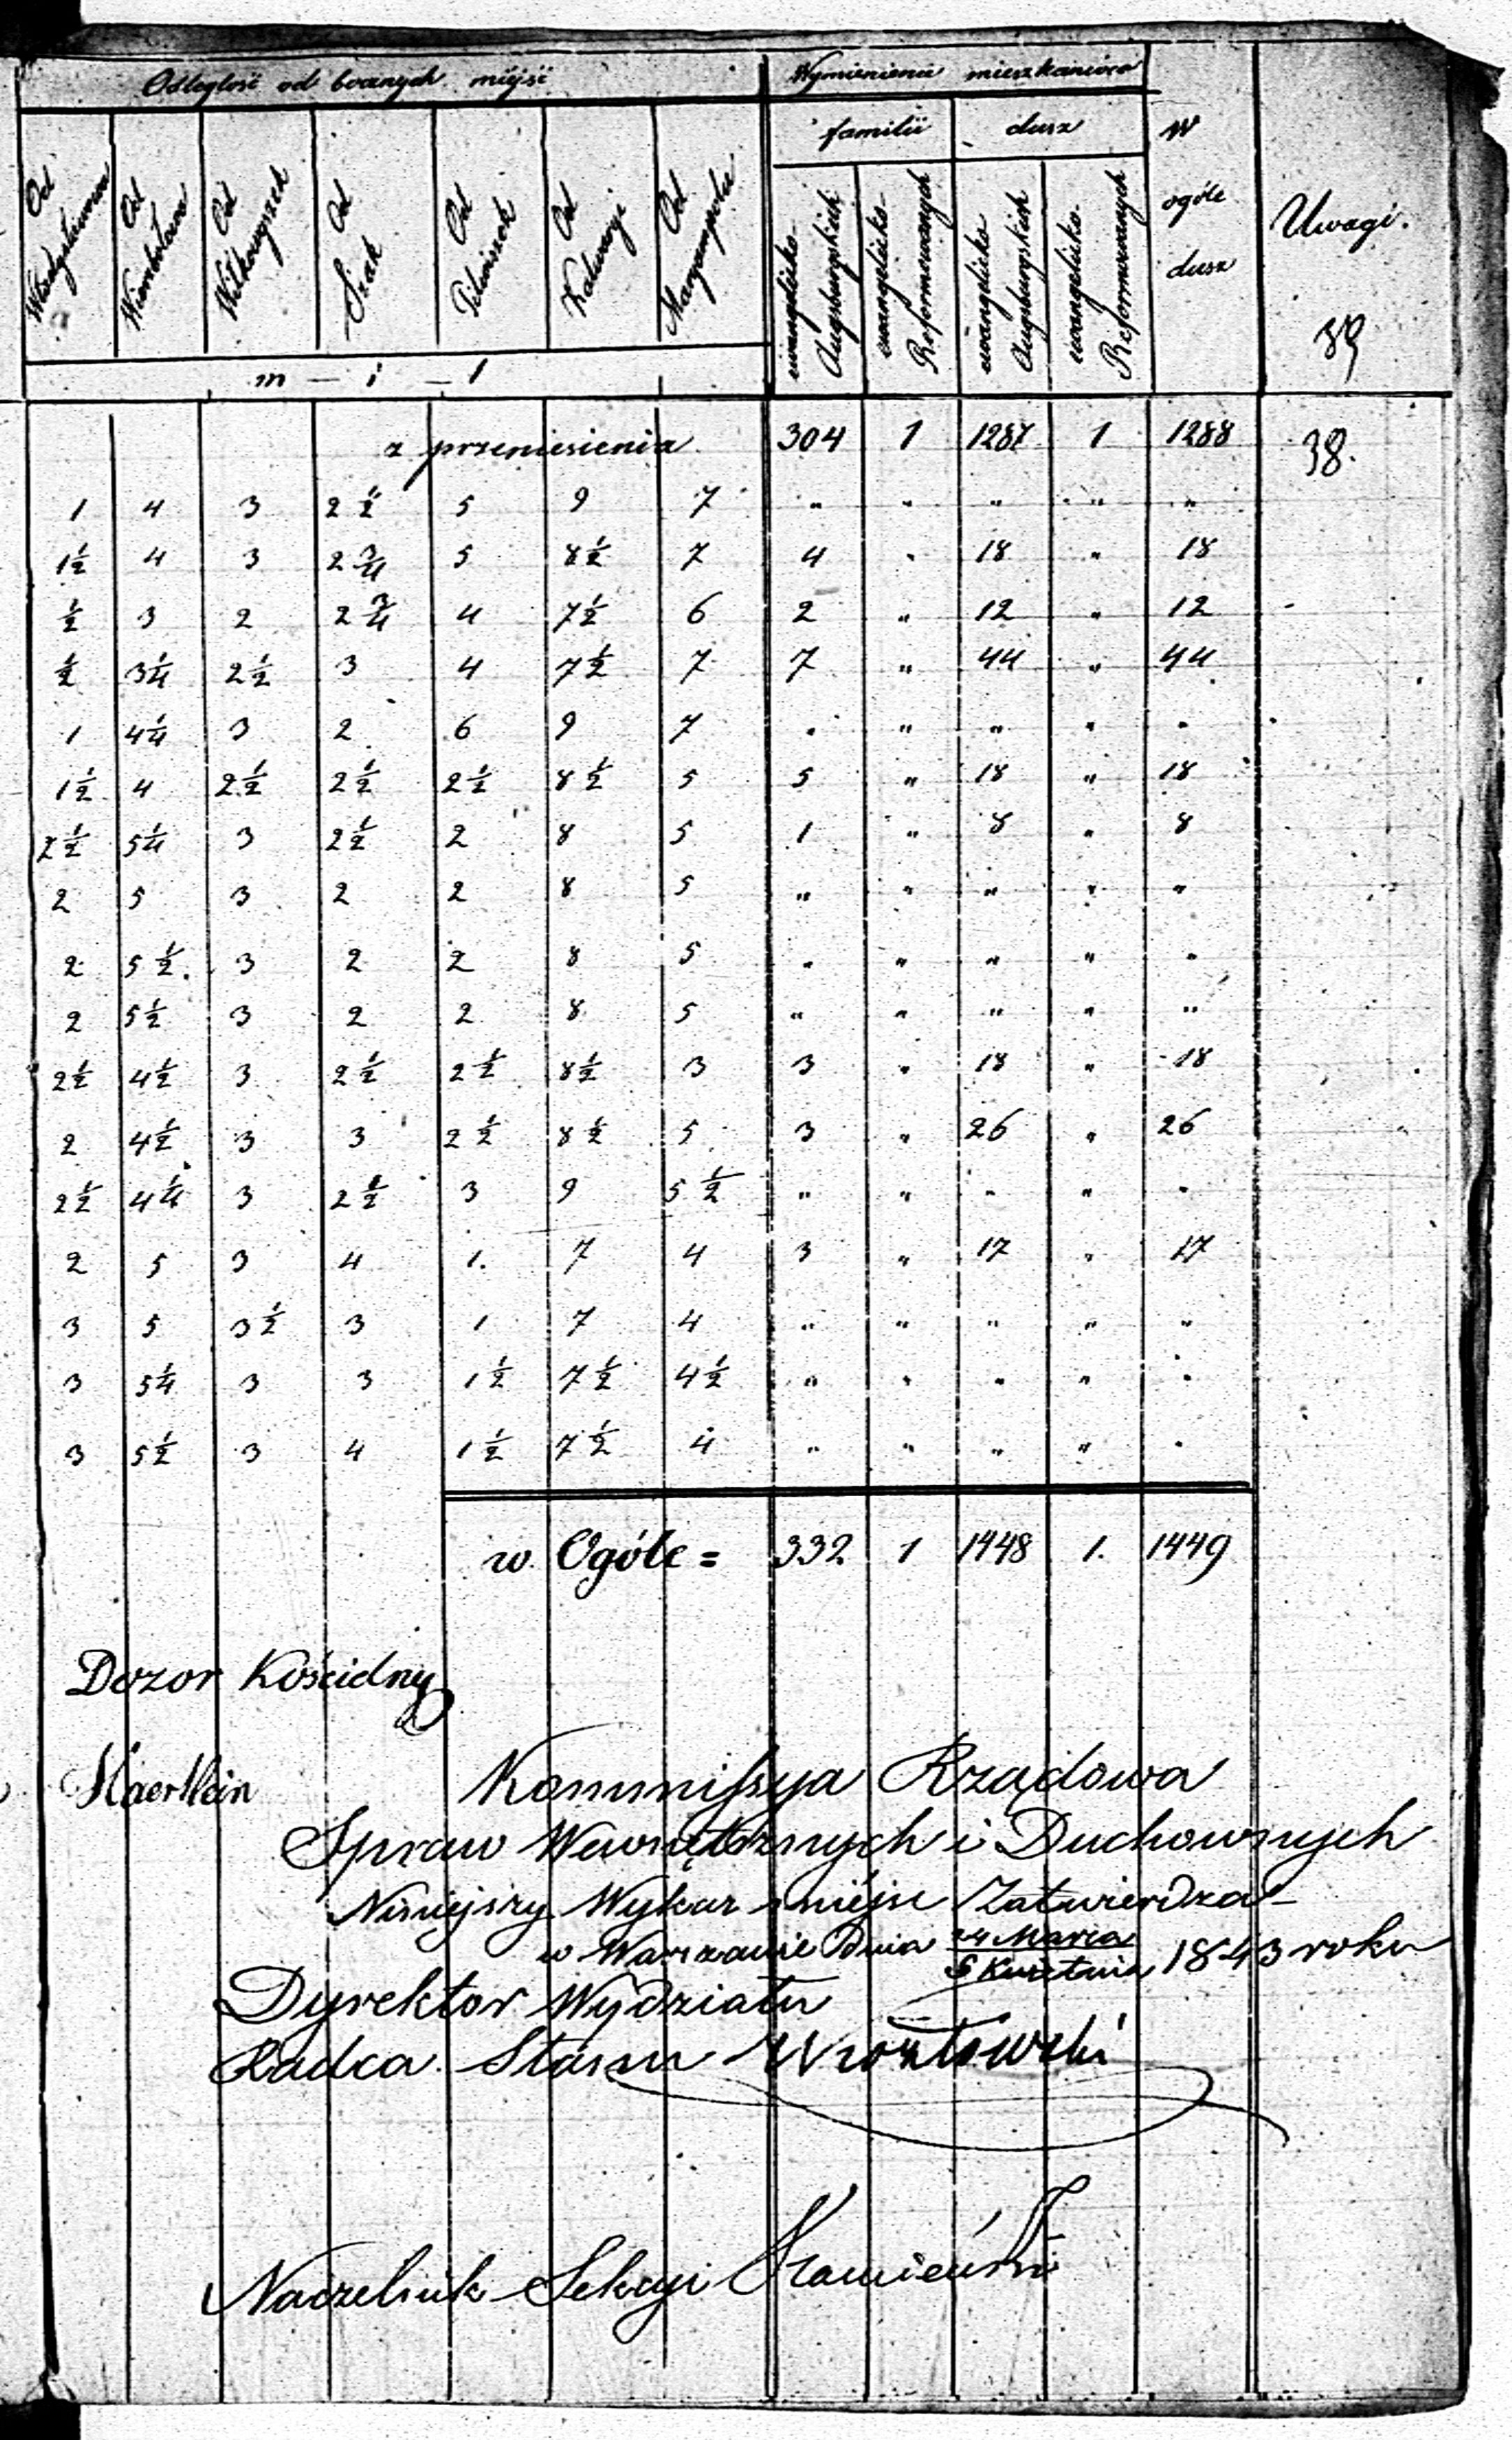 Odległość od bocznych miejsc Wymienienie mieszkańców
familii dusz w ogóle dusz Uwagi.
Od Władysławowa Od Wierzbołowa Od Wiłkowyszek Od Szak Od Pilwiszek Od Kalwaryi Od Maryampola ewangelicko- Augsburgskich ewangelicko- Reformowanych ewangelicko Augsburgskich ewangelicko- Reformowanych
39
m – i – l
z przeniesienia 304 1 1287 1 1288 38.
1 4 3 2½ 5 9 7 " " " " "
1½ 4 3 2¾ 5 8½ 7 4 " 18 " 18
½ 3 2 2¾ 4 7½ 6 2 " 12 " 12
½ 3¼ 2½ 3 4 7½ 7 7 " 44 " 44
1 4¼ 3 2 6 9 7 " " " " "
1½ 4 2½ 2½ 2½ 8½ 5 5 " 18 " 18
2½ 5¼ 3 2½ 2 8 5 1 " 8 " 8
2 5 3 2 2 8 5 " " " " "
2 5½ 3 2 2 8 5 " " " " "
2 5½ 3 2 2 8 5 " " " " "
2½ 4½ 3 2½ 2½ 8½ 3 3 " 18 " 18
2 4½ 3 3 2½ 8½ 5 3 " 26 " 26
2½ 4¼ 3 2½ 3 9 5½ " " " " "
2 5 3 4 1. 7 4 3 " 17 " 17
3 5 3½ 3 1 7 4 " " " " "
3 5¼ 3 3 1½ 7½ 4½ " " " " "
3 5½ 3 4 1½ 7½ 4 " " " " "
w Ogóle = 332 1 1448 1. 1449
Dozor Kościelny
Kommissya Rządowa
Spraw Wewnętrznych i Duchownych
Niniejszy Wykaz miejsc Zatwierdza
w Warszawie Dnia 24 Marca / 5 Kwietnia 1843 roku
Dyrektor Wydziału
Radca Stanu
Naczelnik Sekcyi Kamieński